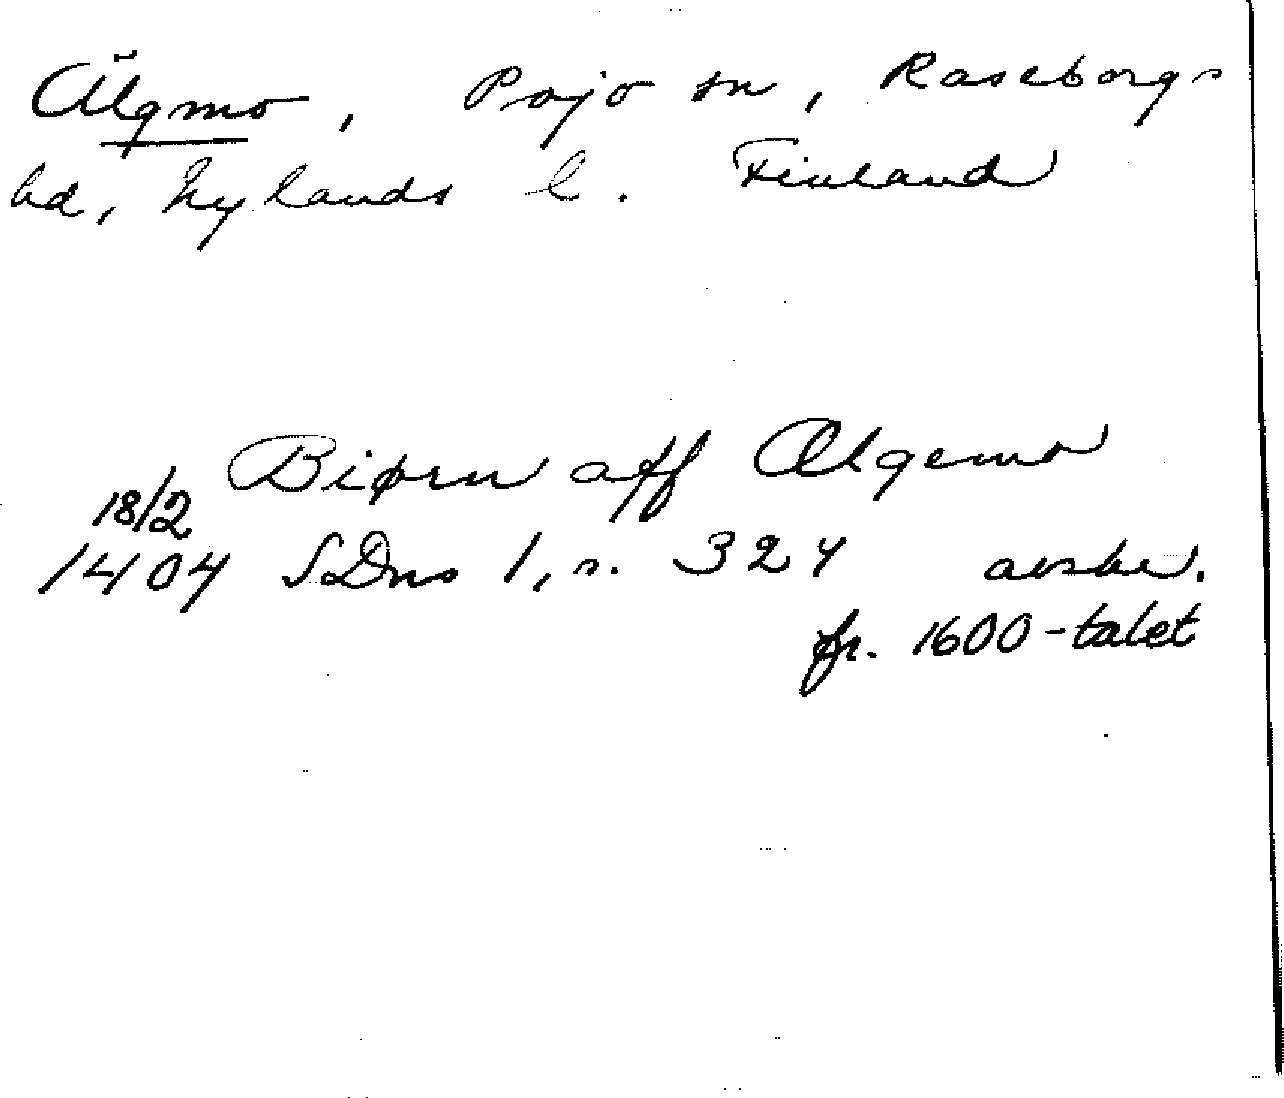 Älgmo, Pojo sn, Raseborgs
hd, Nylands l. Finland
Biørn aff Ælgemo
18/2
1404 SDns 1, s. 324 avskr.
fr. 1600-talet